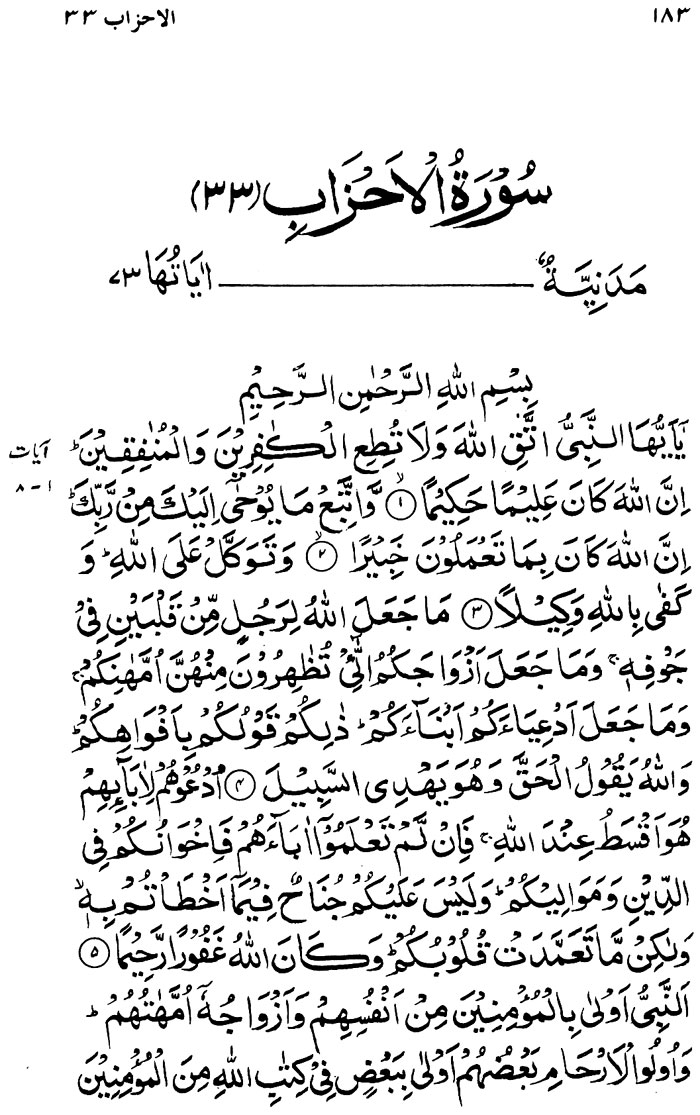 ١٨٣
الاحزاب ٣٣
سُوْرَةُ الْاَحْزَابِ (٣٣)
مَدَنِيَّةٌ ـــــــــــــ اٰيَاتُهَا ٧٣
بِسْمِ اللّٰهِ الرَّحْمٰنِ الرَّحِيْمِ
يٰٓاَيُّهَا النَّبِيُّ اتَّقِ اللّٰهَ وَلَا تُطِعِ الْكٰفِرِيْنَ وَالْمُنٰفِقِيْنَ ؕ
آيات
١-٨
اِنَّ اللّٰهَ كَانَ عَلِيْمًا حَكِيْمًا ۙ﴿١﴾ وَّاتَّبِعْ مَا يُوْحٰٓى اِلَيْكَ مِنْ رَّبِّكَ ؕ
اِنَّ اللّٰهَ كَانَ بِمَا تَعْمَلُوْنَ خَبِيْرًا ۙ﴿٢﴾ وَتَوَكَّلْ عَلَى اللّٰهِ ؕ وَ
كَفٰى بِاللّٰهِ وَكِيْلًا ﴿٣﴾ مَا جَعَلَ اللّٰهُ لِرَجُلٍ مِّنْ قَلْبَيْنِ فِيْ
جَوْفِهٖ ۚ وَمَا جَعَلَ اَزْوَاجَكُمُ الّٰٓئِيْ تُظٰهِرُوْنَ مِنْهُنَّ اُمَّهٰتِكُمْ ۚ
وَمَا جَعَلَ اَدْعِيَآءَكُمْ اَبْنَآءَكُمْ ؕ ذٰلِكُمْ قَوْلُكُمْ بِاَفْوَاهِكُمْ ؕ
وَاللّٰهُ يَقُوْلُ الْحَقَّ وَهُوَ يَهْدِى السَّبِيْلَ ﴿٤﴾ اُدْعُوْهُمْ لِاٰبَآئِهِمْ
هُوَ اَقْسَطُ عِنْدَ اللّٰهِ ۚ فَاِنْ لَّمْ تَعْلَمُوْٓا اٰبَآءَهُمْ فَاِخْوَانُكُمْ فِى
الدِّيْنِ وَمَوَالِيْكُمْ ؕ وَلَيْسَ عَلَيْكُمْ جُنَاحٌ فِيْمَآ اَخْطَاْتُمْ بِهٖ ۙ
وَلٰكِنْ مَّا تَعَمَّدَتْ قُلُوْبُكُمْ ؕ وَكَانَ اللّٰهُ غَفُوْرًا رَّحِيْمًا ﴿٥﴾
اَلنَّبِيُّ اَوْلٰى بِالْمُؤْمِنِيْنَ مِنْ اَنْفُسِهِمْ وَاَزْوَاجُهٗٓ اُمَّهٰتُهُمْ ؕ
وَاُولُوا الْاَرْحَامِ بَعْضُهُمْ اَوْلٰى بِبَعْضٍ فِيْ كِتٰبِ اللّٰهِ مِنَ الْمُؤْمِنِيْنَ